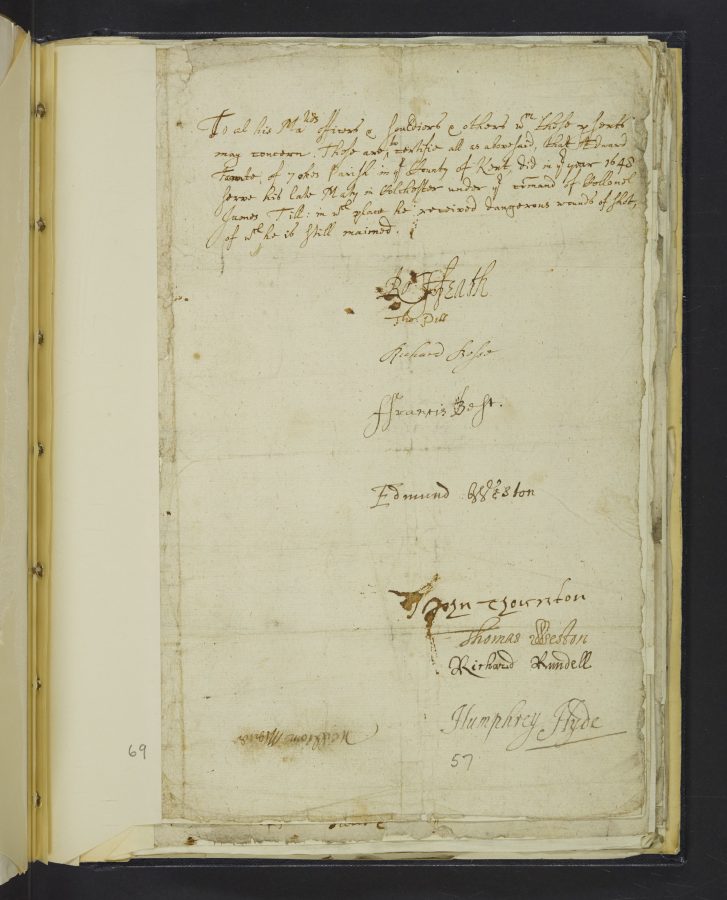 To al his Ma.ties officers & souldiers & others wm. these psents
may concern. These are to certifie all as aboresaid, that Edward
of Parish in ye County of Kent, did in ye year 1648
serve his late Maty in Colchester under ye comand of Collonel
James Till: in wch. place he received dangerous wounds of shot,
of wch. he is still maimed.
Ro: Heath
Tho: Dill
Richard
ffrancis Best.
Edmund Weston
John Thornton
Thomas Weston
Richard Rundell
Humphrey Hyde
57
69